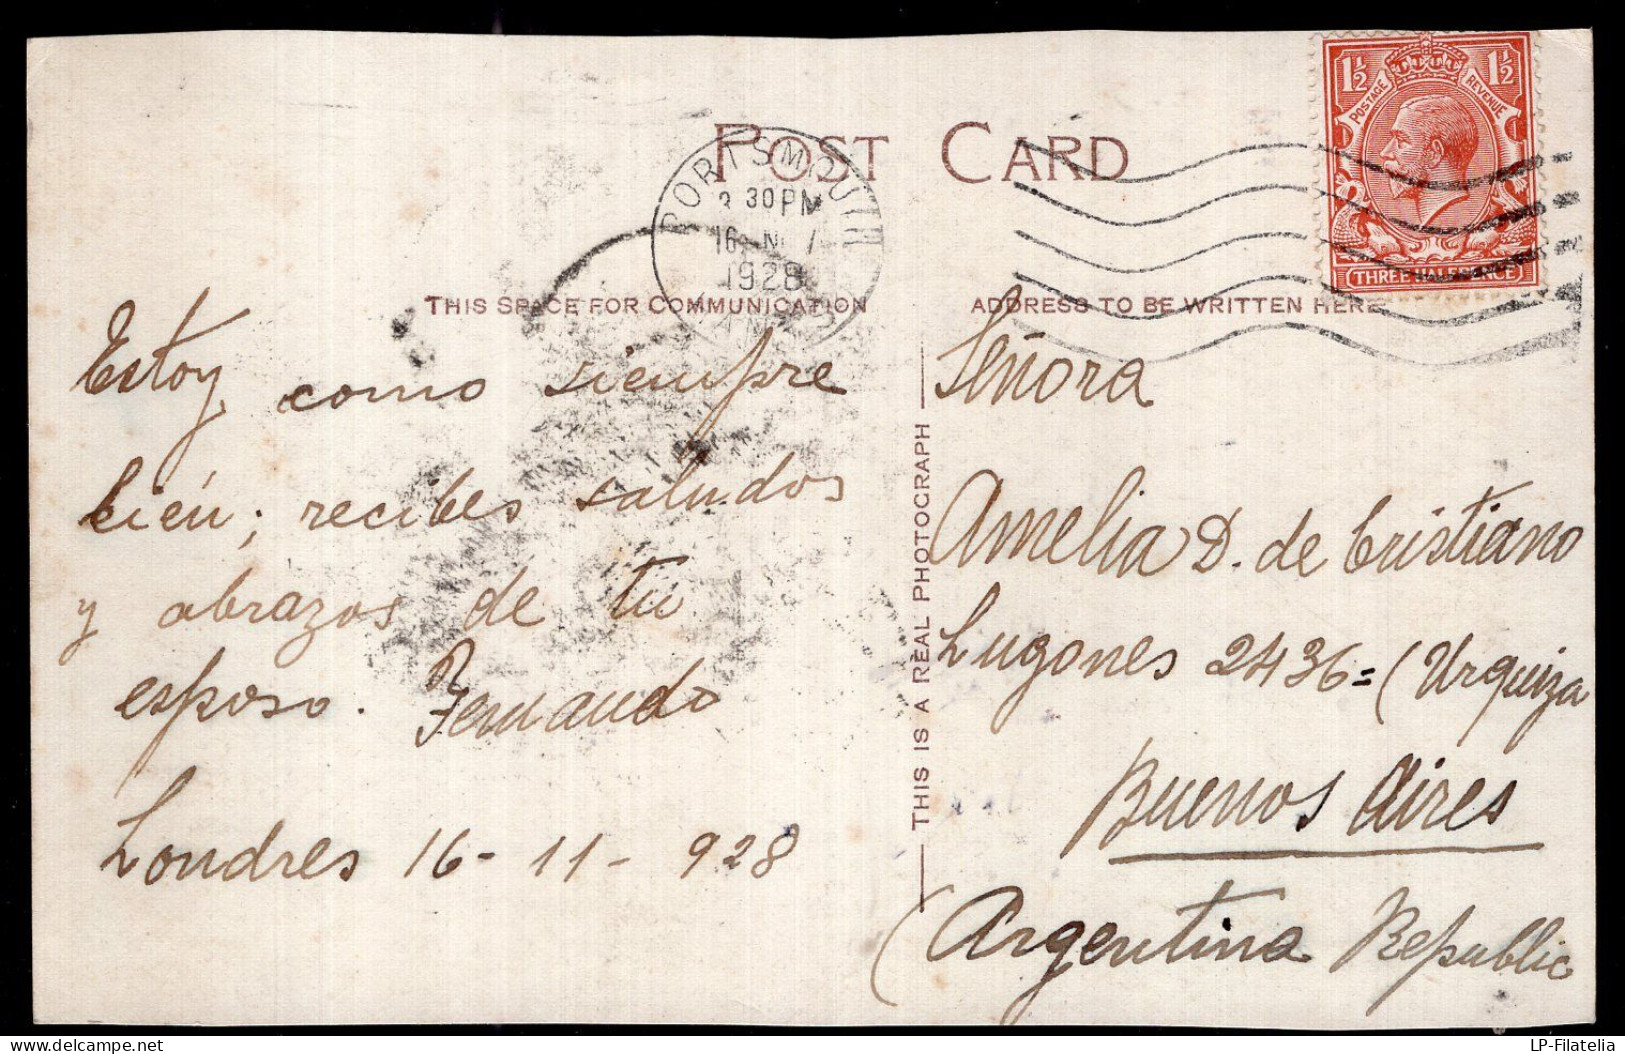 POST CARD
PORTSMOUTH
30 PM
16 NOV
1928
1½ 1½
POSTAGE REVENUE
THREE HALFPENCE
THIS SPACE FOR COMMUNICATION
ADDRESS TO BE WRITTEN HERE
Estoy como siempre
bién; recibes saludos
y abrazos de tu
esposo. Fernando
Londres 16-11-928
THIS IS A REAL PHOTOGRAPH
Señora
Amelia D. de Cristiano
Lugones 2436=(Urquiza
Buenos Aires
(Argentina Republic
LP-Filatelia